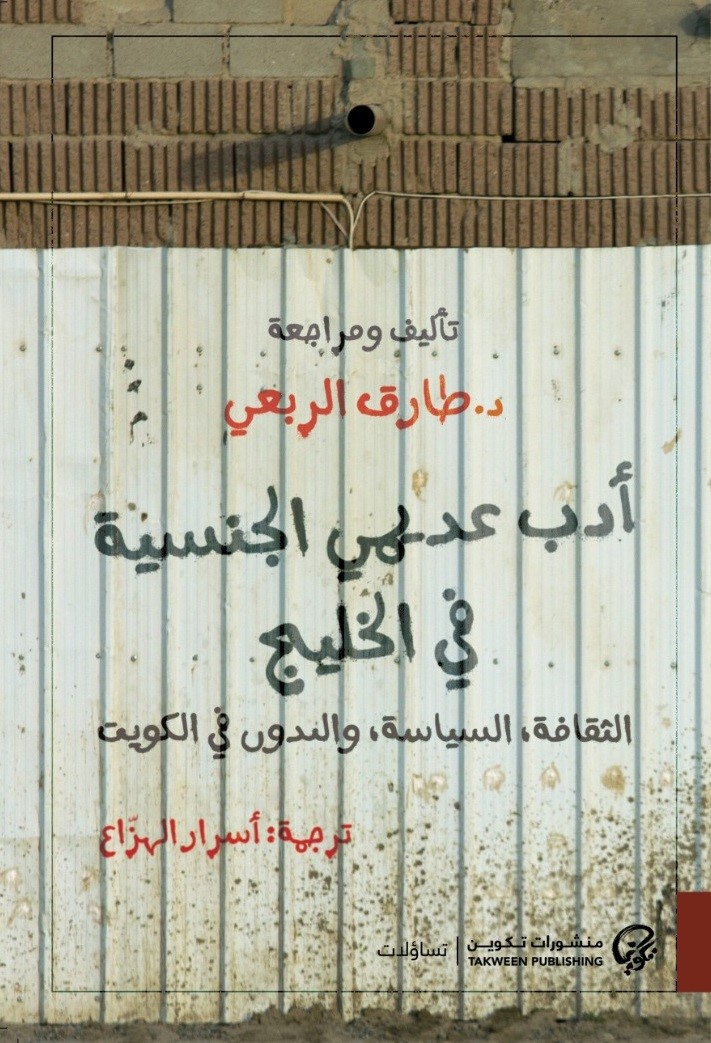 تأليف ومراجعة
د. طارق الربعي
أدب عديمي الجنسية
في الخليج
الثقافة، السياسة، والبدون في الكويت
ترجمة: أسرار الهزّاع
منشورات تكويـن | تساؤلات
TAKWEEN PUBLISHING
تكوين